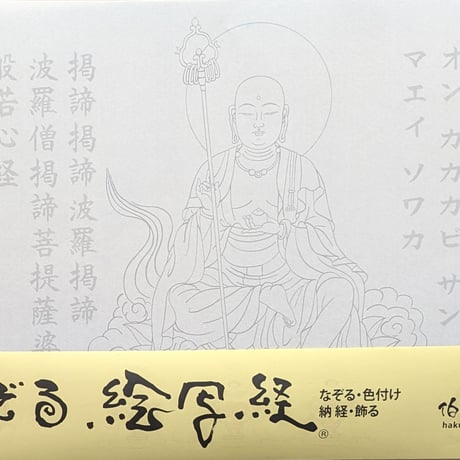 オン カカカビ サン
マエイ ソワカ
掲諦掲諦波羅掲諦
波羅僧掲諦菩提薩婆
般若心経
ぞる 絵写経®
なぞる・色付け
納経・飾る
伯
haku